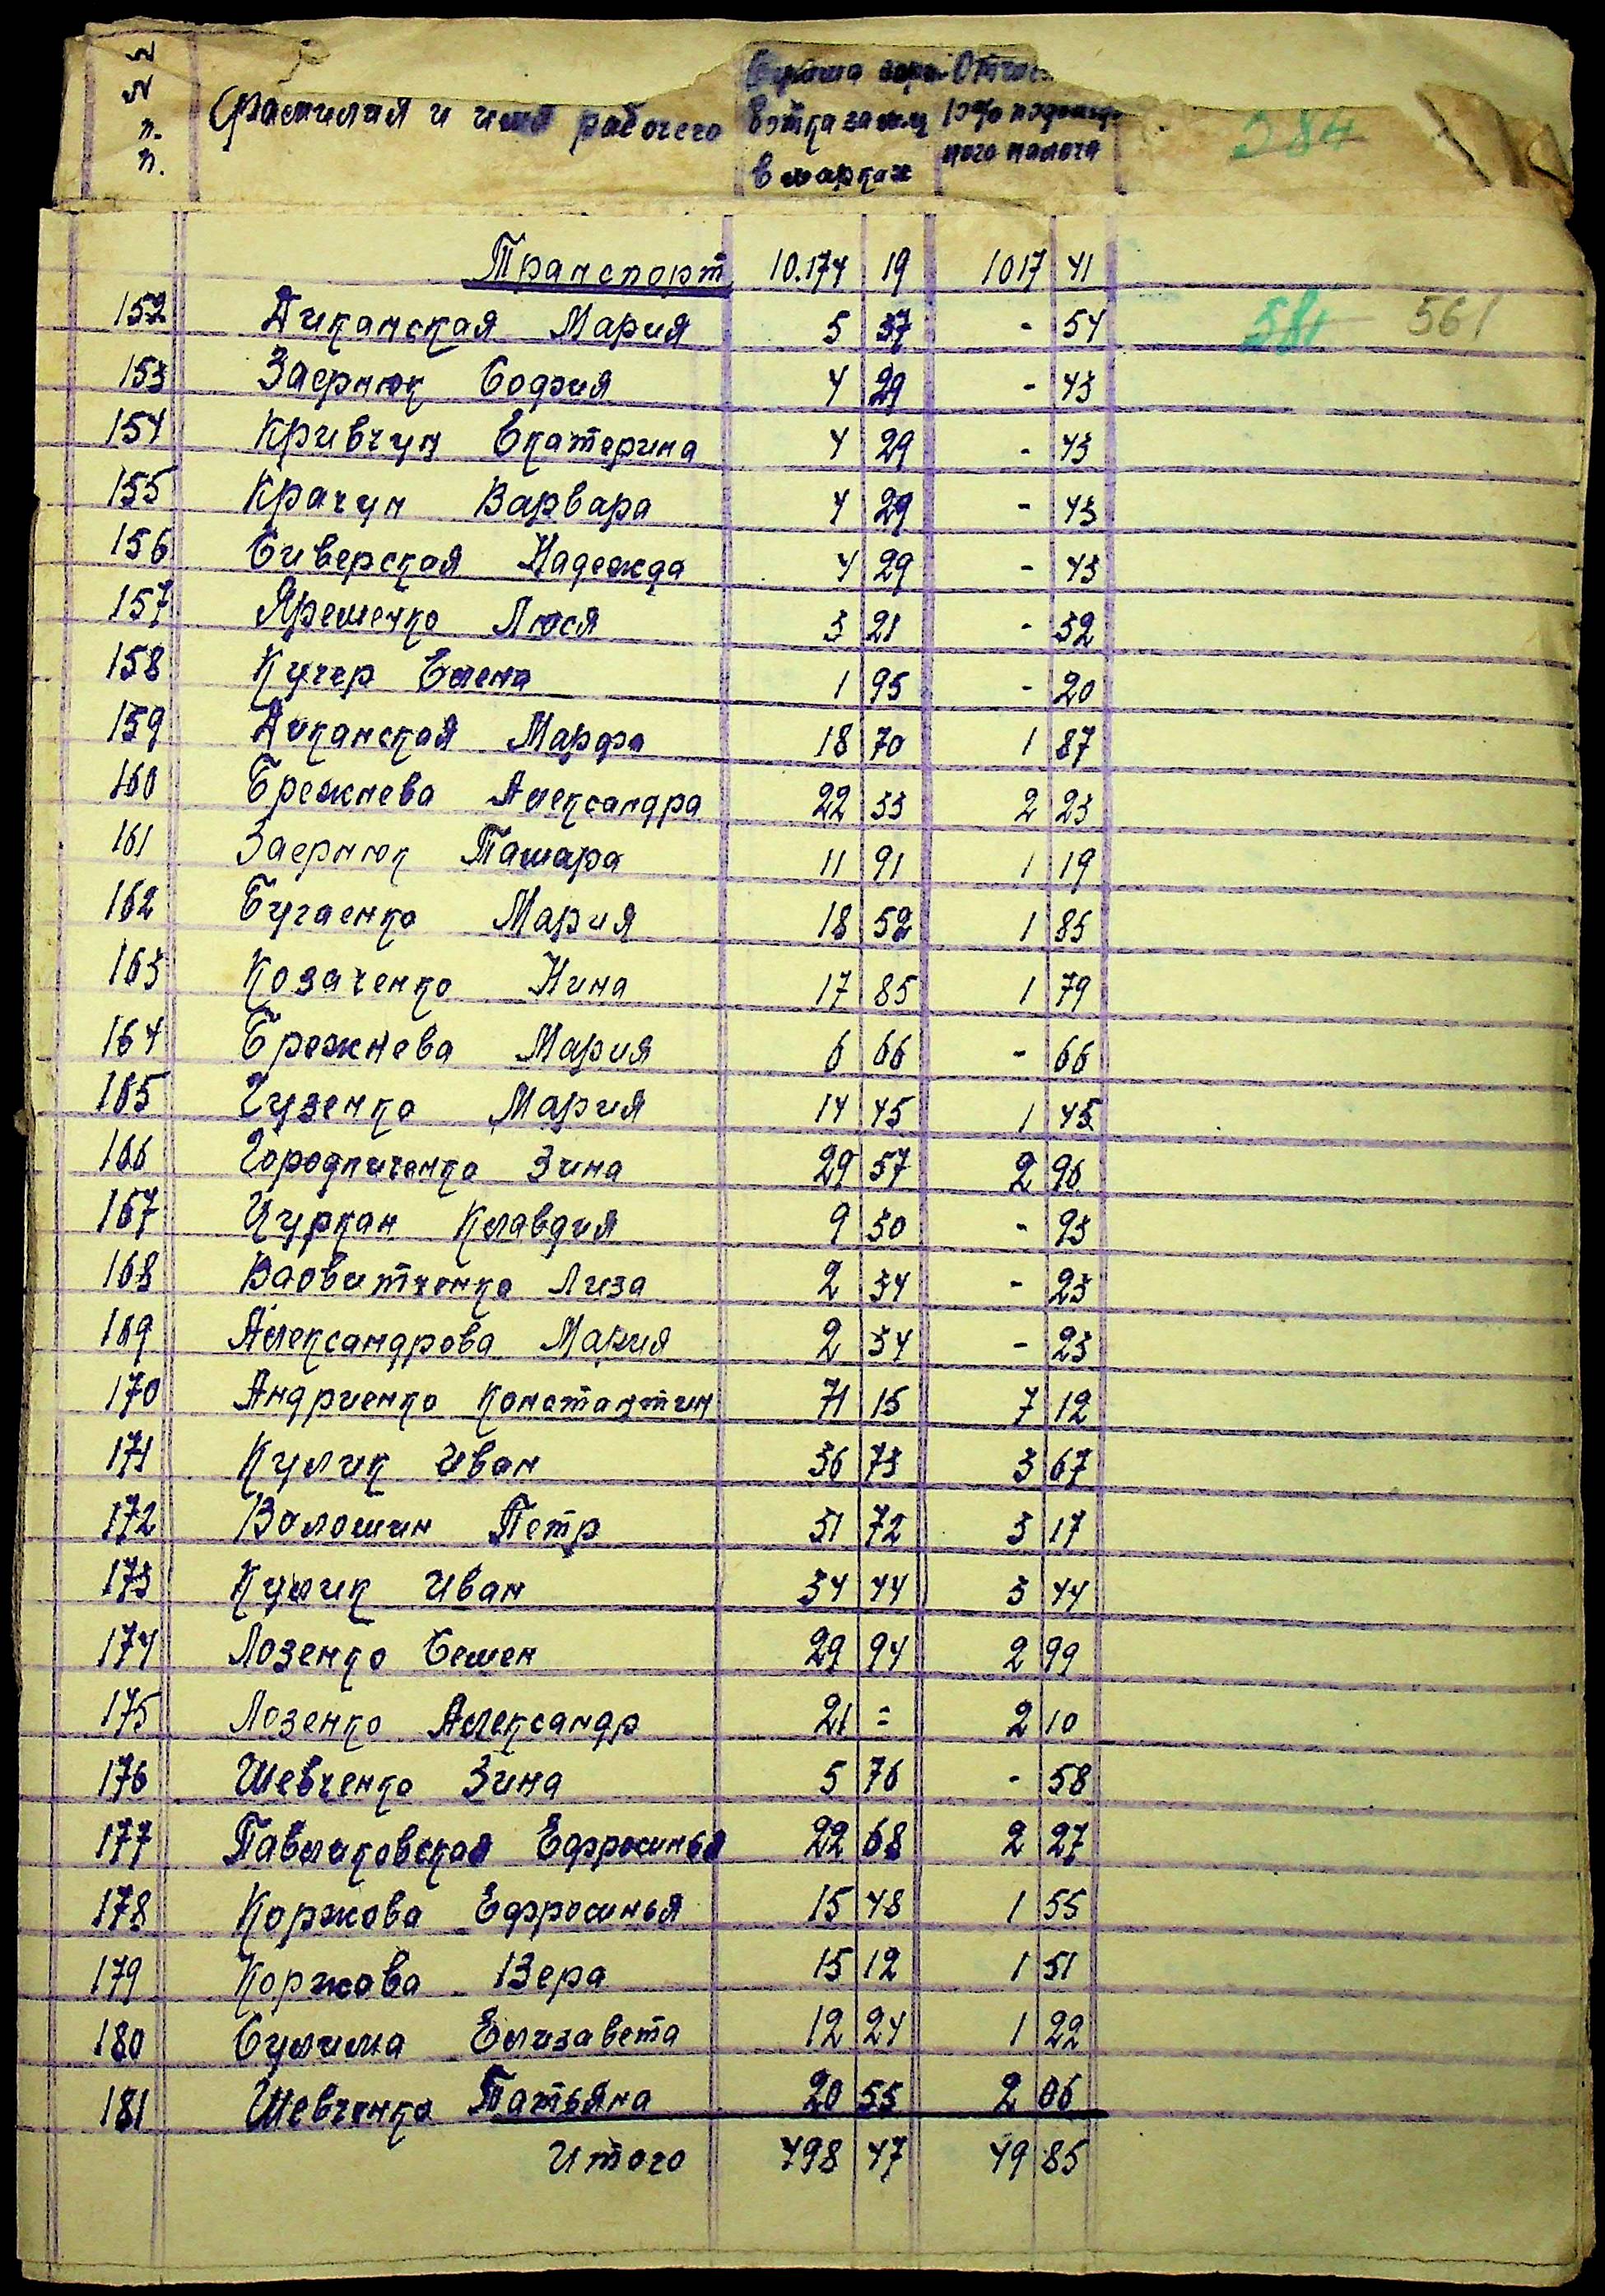 № Фамилия и имя рабочего Сумма зара- Отчис.
№ ботка за м-ц 10% подоход-
п. ного налога
п. в марках
384
Транспорт 10.174 19 1017 41
152 Диканская Мария 5 37 - 54 584 561
153 Заернюк София 4 29 - 43
154 Кривчун Екатерина 4 29 - 43
155 Крачун Варвара 4 29 - 43
156 Сиверская Надежда 4 29 - 43
157 Яременко Люся 3 21 - 32
158 Кучер Елена 1 95 - 20
159 Диканская Марфа 18 70 1 87
160 Брежнева Александра 22 33 2 23
161 Заернюк Тамара 11 91 1 19
162 Бугаенко Мария 18 52 1 85
163 Козаченко Нина 17 85 1 79
164 Брежнева Мария 6 66 - 66
165 Гузенко Мария 14 45 1 45
166 Городниченко Зина 29 57 2 96
167 Цуркан Клавдия 9 30 - 93
168 Лиза 2 34 - 23
169 Александрова Мария 2 34 - 23
170 Андриенко Константин 71 15 7 12
171 Кулик Иван 36 73 3 67
172 Волошин Петр 31 72 3 17
173 Кулик Иван 34 44 3 44
174 Лозенко Семен 29 94 2 99
175 Лозенко Александр 21 = 2 10
176 Шевченко Зина 5 76 - 58
177 Павликовская Ефросинья 22 68 2 27
178 Коржова Ефросинья 15 48 1 55
179 Коржова Вера 15 12 1 51
180 Сулима Елизавета 12 24 1 22
181 Шевченко Татьяна 20 55 2 06
Итого 498 47 49 85